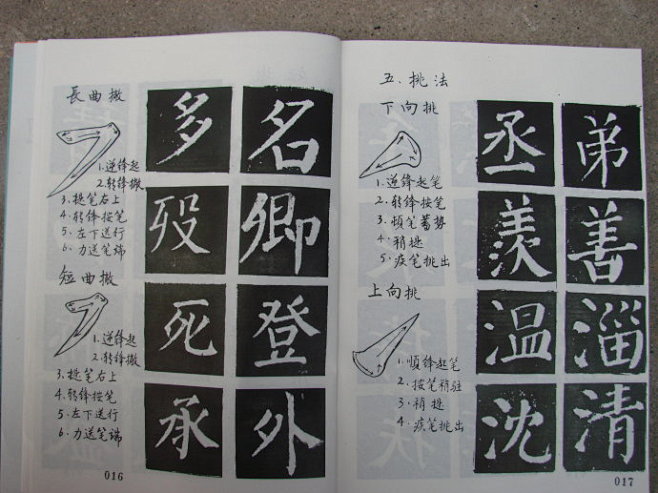 長曲撇
1.逆锋起
2.转锋撇
3.提笔右上
4.转锋按笔
5.左下送行
6.力送笔端
短曲撇
1.逆锋起
2.转锋撇
3.提笔右上
4.转锋按笔
5.左下送行
6.力送笔端
多 名
殁 卿
死 登
承 外
016
五.挑法
下向挑
1.逆锋起笔
2.转锋按笔
3.頓笔蓄势
4.稍提
5.疾笔挑出
上向挑
1.順锋起笔
2.按笔稍驻
3.稍提
4.疾笔挑出
丞 弟
羨 善
温 淄
沈 清
017